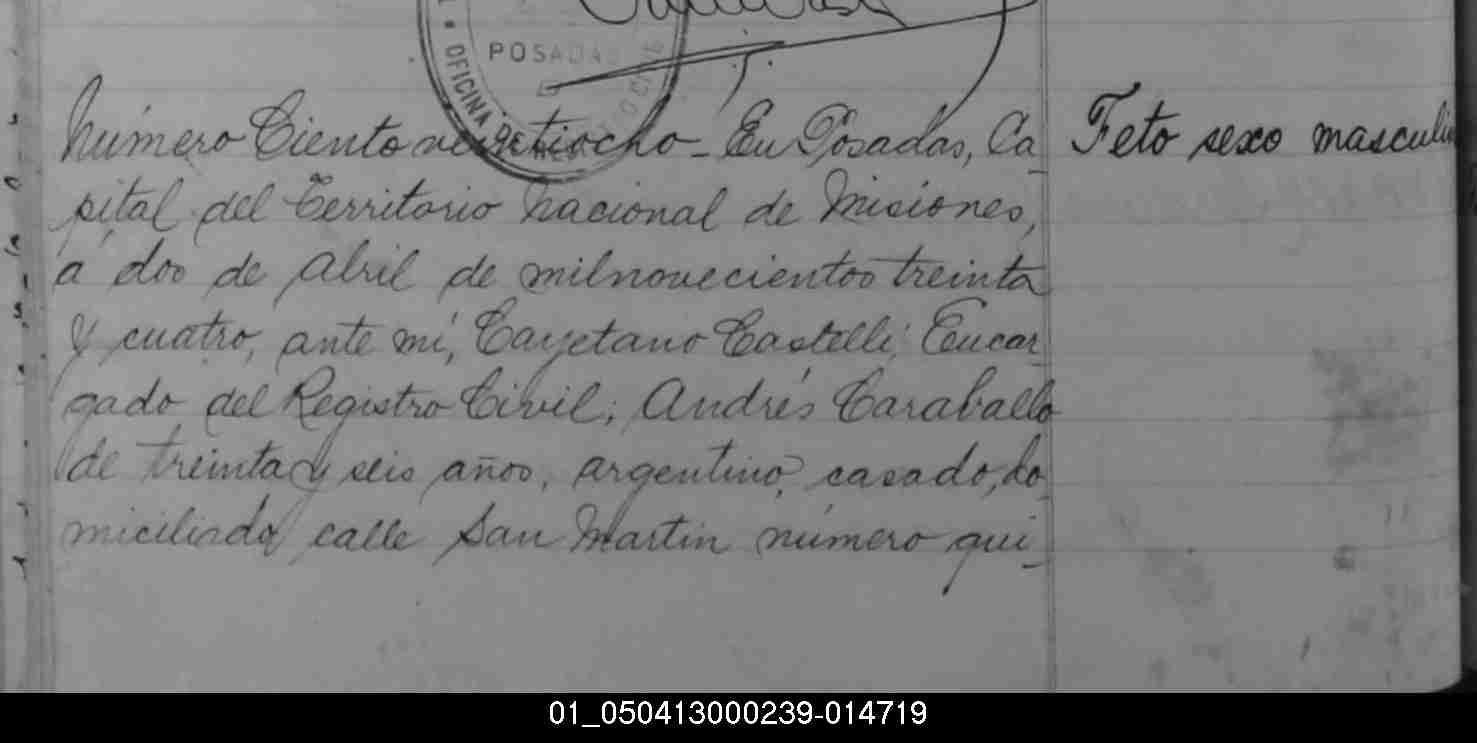 POSADAS
OFICINA DE
Número Ciento veintiocho - En Posadas, Ca-
pital del Territorio Nacional de Misiones,
á dos de Abril de milnovecientos treinta
y cuatro, ante mí, Cayetano Castelli, Encar-
gado del Registro Civil; Andrés Caraballo
de treinta y seis años, argentino, casado, do-
miciliado calle San Martin número qui-
Feto sexo masculi
01_050413000239-014719